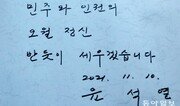 민주와 인권의
오월 정신
반듯이 세우겠습니다
2021. 11. 10.
윤 석 열
동아일보